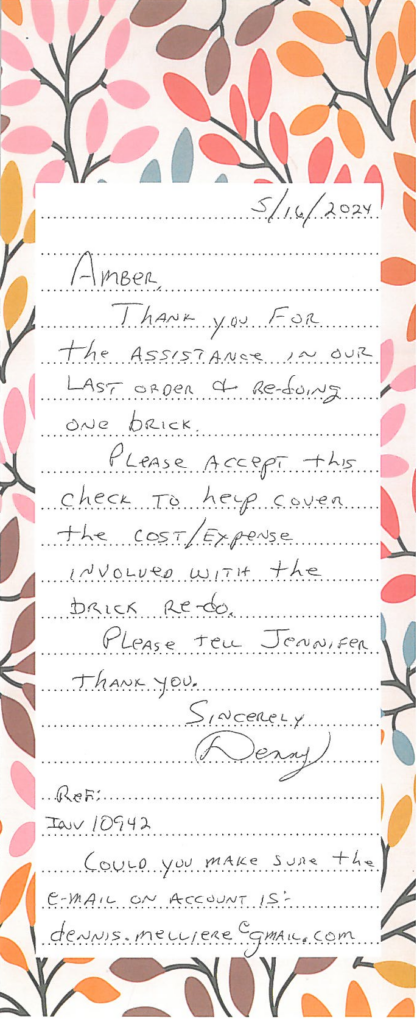 5/16/2024
Amber,
Thank you For
the Assistance in our
Last order & Re-doing
one brick.
Please Accept this
check to help cover
the cost/Expense
involved with the
brick Re-do.
Please tell Jennifer
Thank you.
Sincerely
Denny
Ref:
Inv 10942
Could you make sure the
e-mail on Account is:-
dennis.melliere@gmail.com